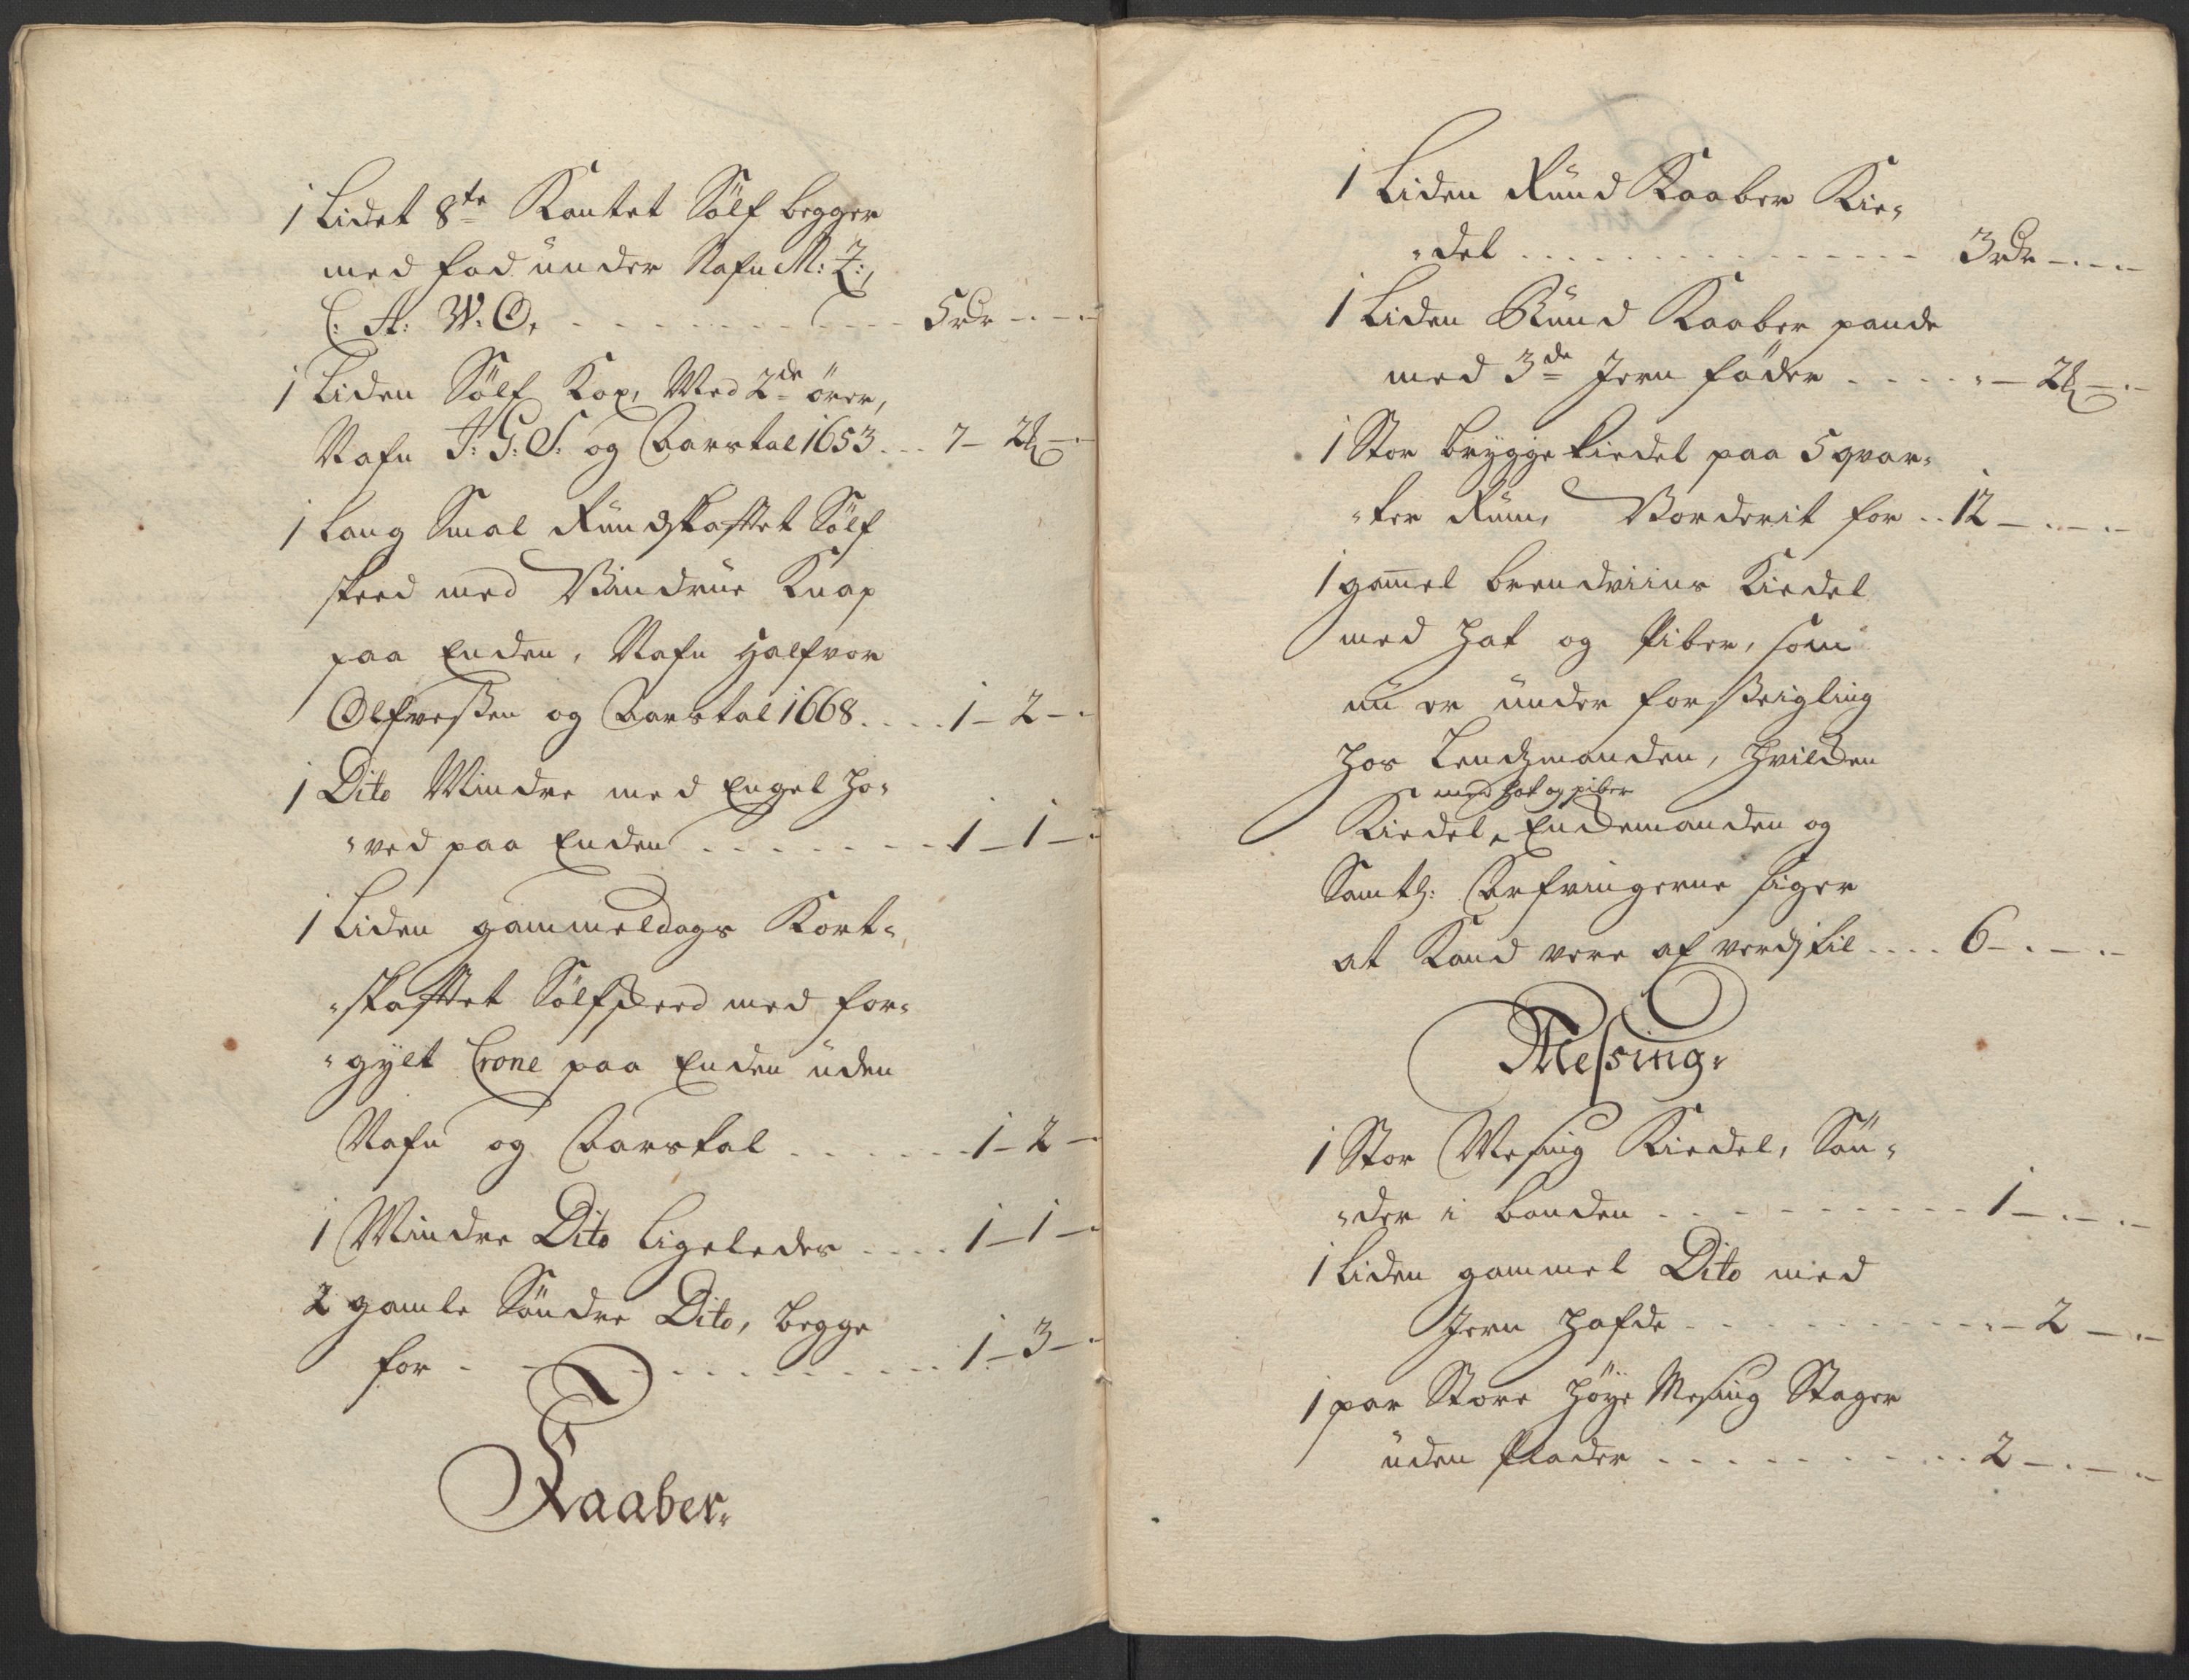 1 Lidet 8te Kantet Sölf begger
med fod under Nafn M: I:,
C: A: W. O, . . . . . . . . . . 5rdr - . - .
1 Liden Sölf Kop, Med 2de ører,
Nafn J: G: S: og Aarstal 1653 . . . 7 - 2ß - .
1 Lang Smal Rundskafftet Sölf
skeed med Vindrue Knap
paa Enden, Nafn Halfvor
Olfveßen og Aarstal 1668 . . . . 1 - 2 - .
1 Dito Mindre med Engel ho-
-ved paa Enden . . . . . . . 1 - 1 - .
1 Liden gammeldags Kort-
-skafftet Sölfskeed med for-
-gylt Crone paa Enden uden
Nafn og Aarstal . . . . . . . 1 - 2 - .
1 Mindre Dito ligeledes . . . . 1 - 1 - .
2 gamle Söndre Dito, begge
for . . . . . . . . . . . . . 1 - 3 - .
Kaaber.
1 Liden Rund Kaaber Kie-
-del . . . . . . . . . . . . . . . 3rdr - . - . -
1 Liden Rund Kaaber pande
med 3de Jern föder . . . . . - 2ß - . -
1 Stor brygge kiedel paa 5 qvar-
-ter Rum, Vorderit for . . 12 - . - . -
1 gam̄el brendviins Kiedel
med Hat og Piber, som
nu er under forseigling
hos Lendsmanden, hvilcken
med hat og piber
Kiedel, Enckemanden og
Samtl: Arfvingerne siger
at Kand vere af verdj til . . . . 6 - . - . -
Messing.
1 Stor Messing Kiedel, Sön-
-der i bonden . . . . . . . . . 1 - . - . -
1 Liden gammel Dito med
Jern Hafde . . . . . . . . . . . - 2 - . -
1 par Store höye Messing Stager
uden Plader . . . . . . . . . . 2 - . - . -